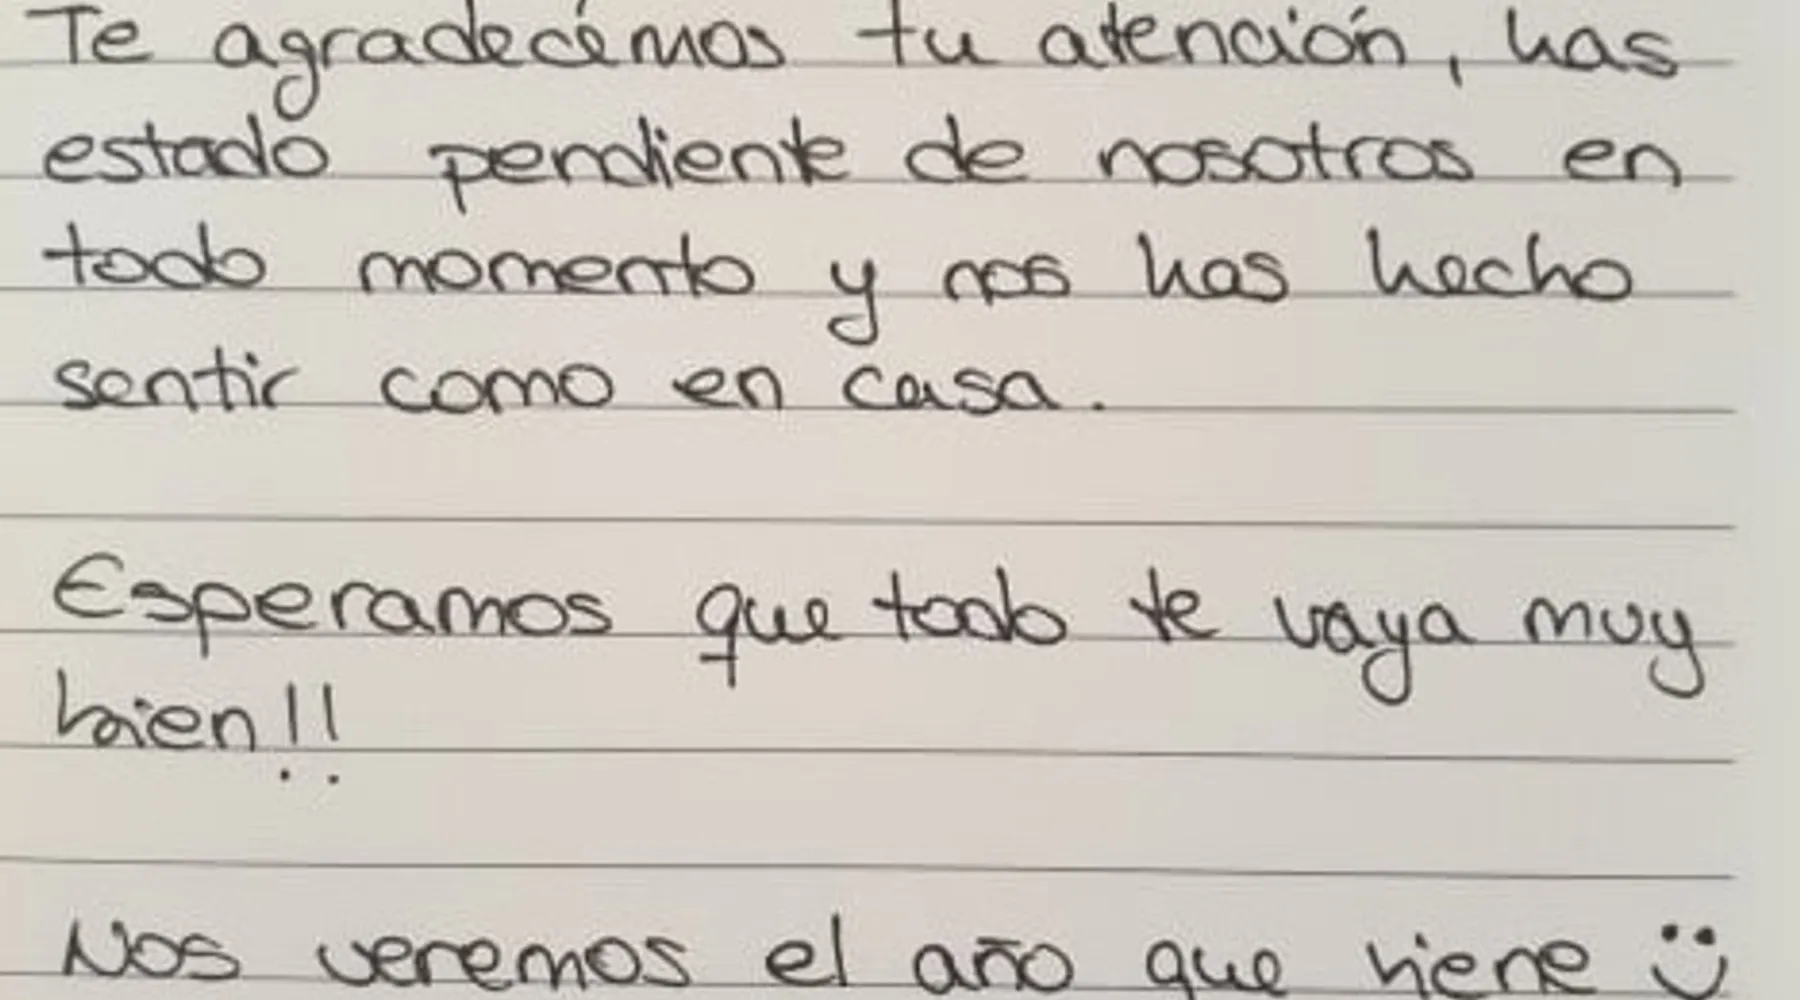 Te agradecémos tu atención, has
estado pendiente de nosotros en
todo momento y nos has hecho
sentir como en casa.
Esperamos que todo te vaya muy
bien!!
Nos veremos el año que viene :)